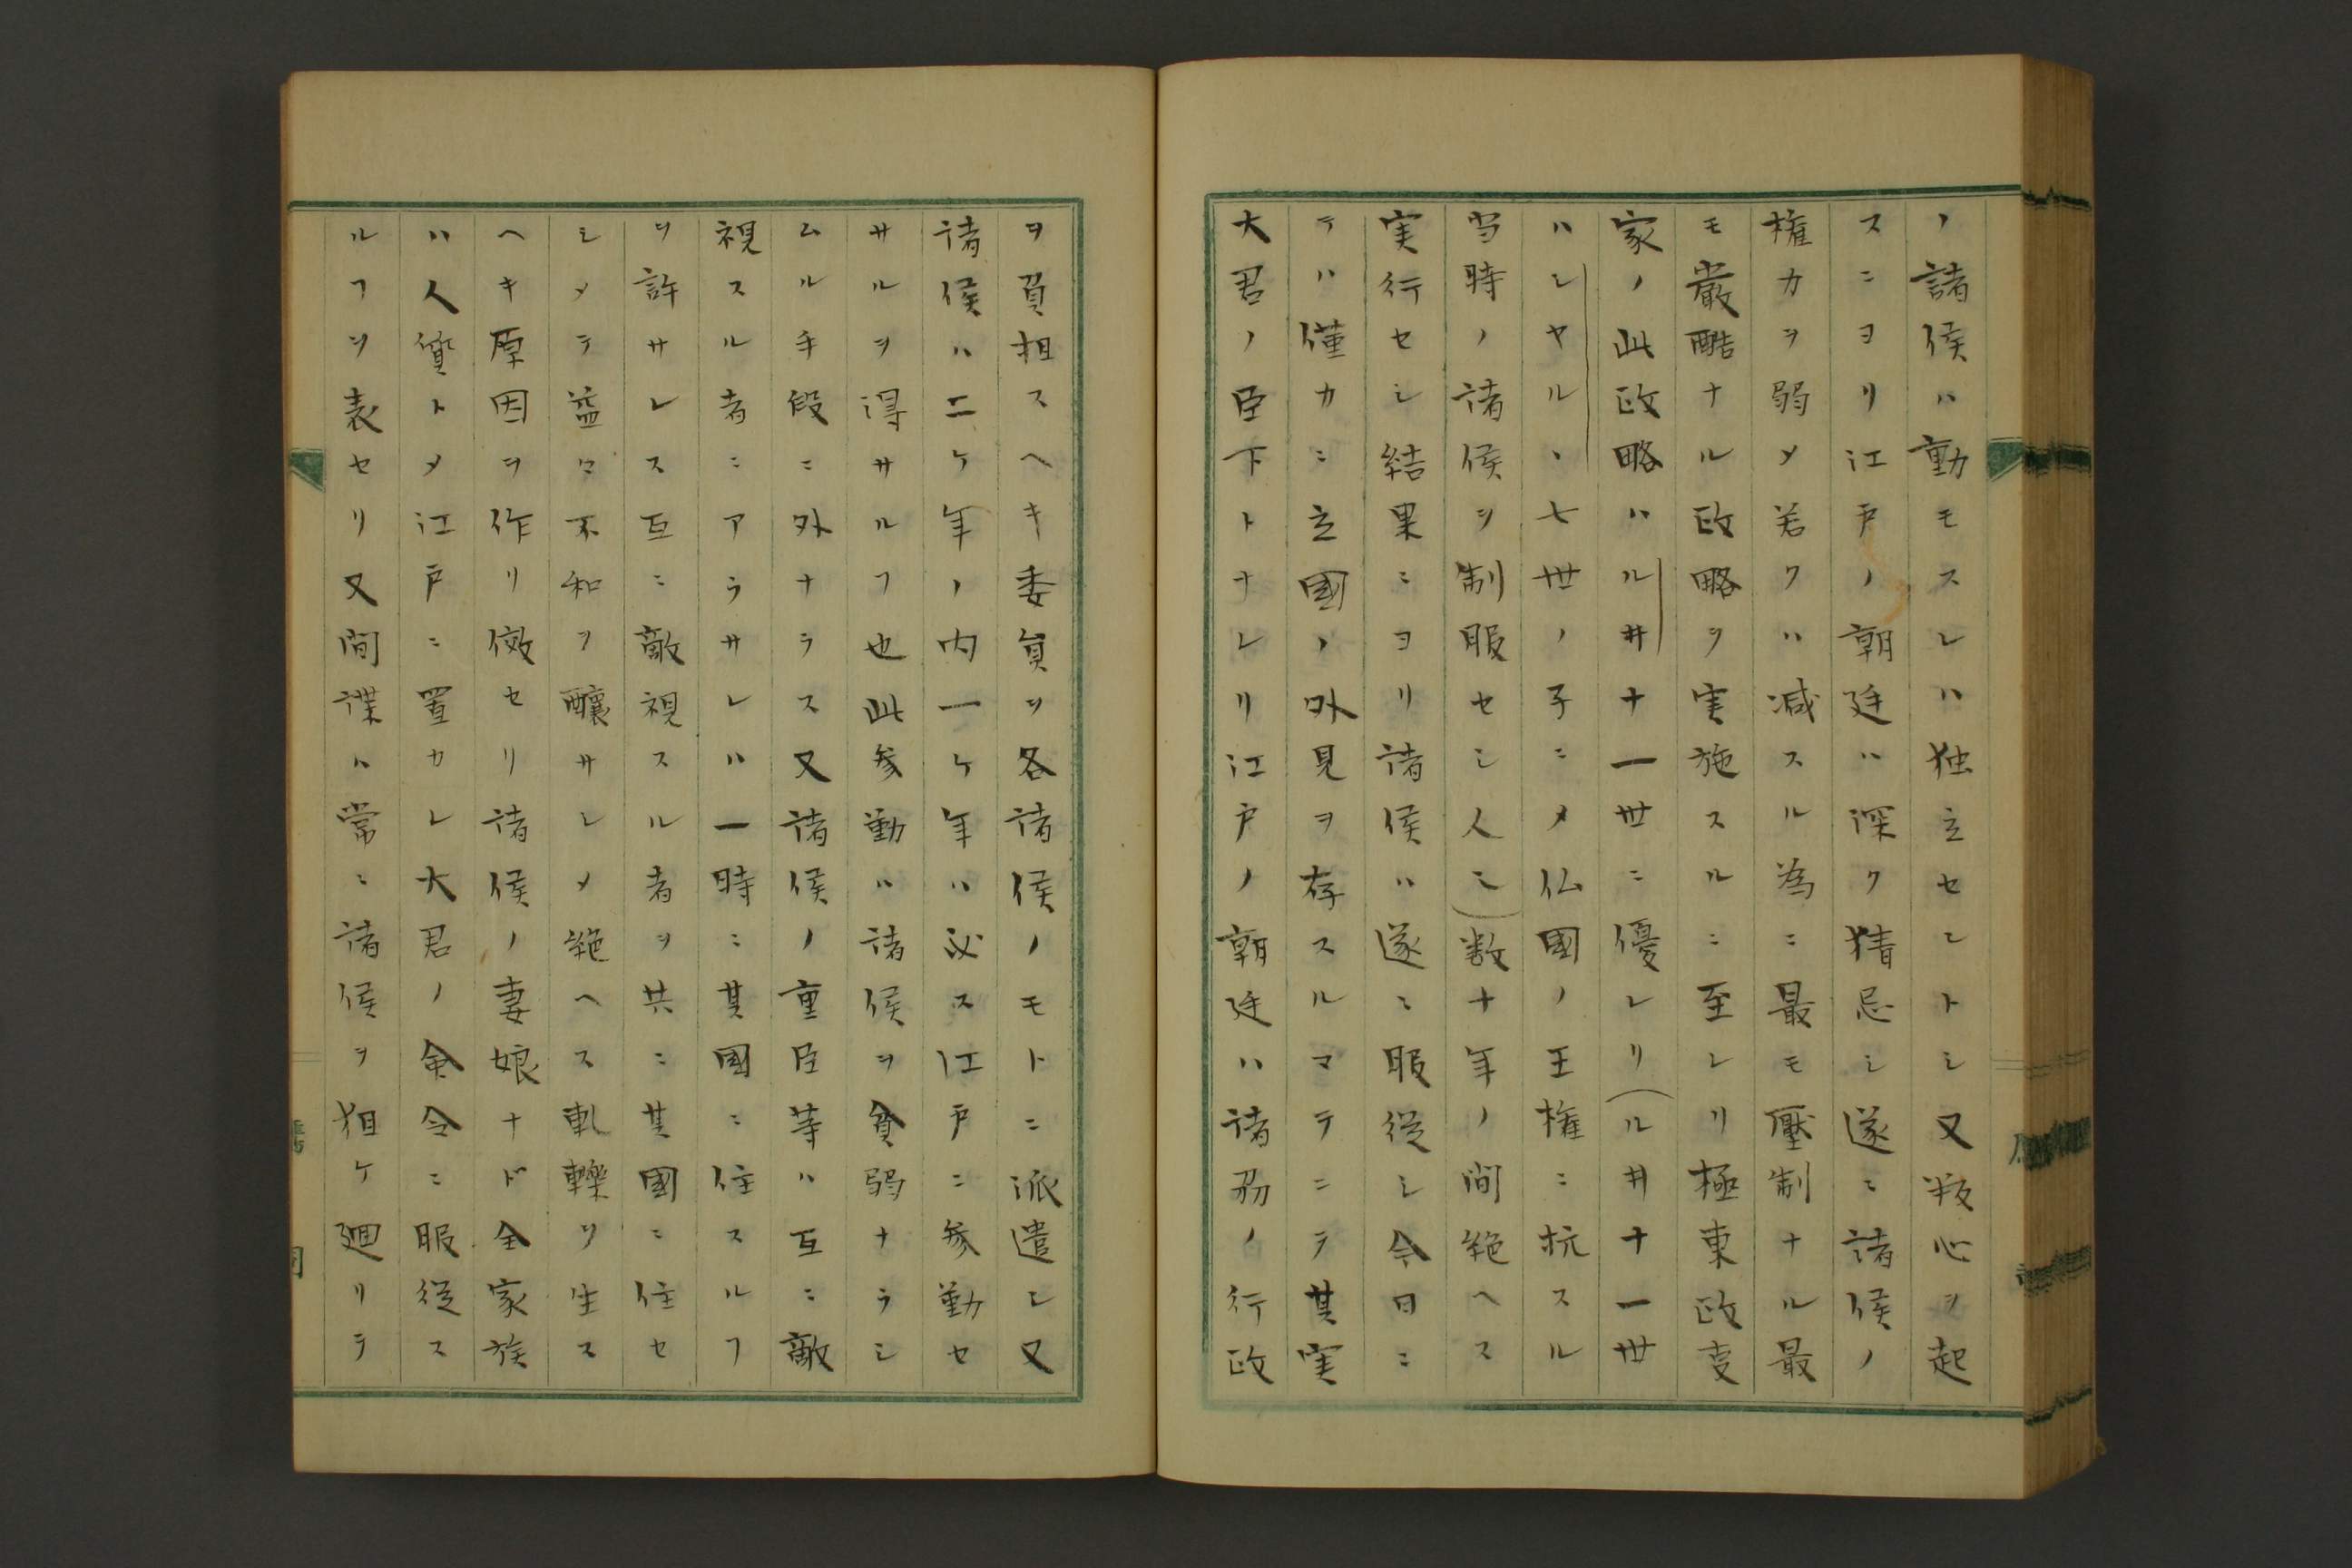 ノ諸侯ハ動モスレハ独立セントシ又叛心ヲ起
スニヨリ江戸ノ朝廷ハ深ク猜忌シ遂ニ諸侯ノ
権力ヲ弱メ若クハ減スル為ニ最モ壓制ナル最
モ厳酷ナル政略ヲ実施スルニ至レリ極東政事
家ノ此政略ハルヰ十一世ニ優レリ(ルヰ十一世
ハシヤルヽ七世ノ子ニメ仏國ノ王権ニ抗スル
当時ノ諸侯ヲ制服セシ人ニ)数十年ノ間絶ヘス
実行セシ結果ニヨリ諸侯ハ遂ニ服従シ今日ニ
テハ僅カニ立國ノ外見ヲ存スルマテニテ其実
大君ノ臣下トナレリ江戸ノ朝廷ハ諸芴ノ行政
ヲ負担スヘキ委員ヲ各諸侯ノモトニ派遣シ又
諸侯ハ二ケ年ノ内一ケ年ハ必ス江戸ニ参勤セ
サルヲ得サルヿ也此参勤ハ諸侯ヲ貧弱ナラシ
ムル手段ニ外ナラス又諸侯ノ重臣等ハ互ニ敵
視スル者ニアラサレハ一時ニ其國ニ住スルヿ
ヲ許サレス互ニ敵視スル者ヲ共ニ其國ニ住セ
シメテ益々不和ヲ醸サシメ絶ヘス軋轢ヲ生ス
ヘキ原因ヲ作リ傚セリ諸侯ノ妻娘ナド全家族
ハ人質トメ江戸ニ置カレ大君ノ命令ニ服従ス
ルヿヲ表セリ又間諜ハ常ニ諸侯ヲ狙ケ廻リテ